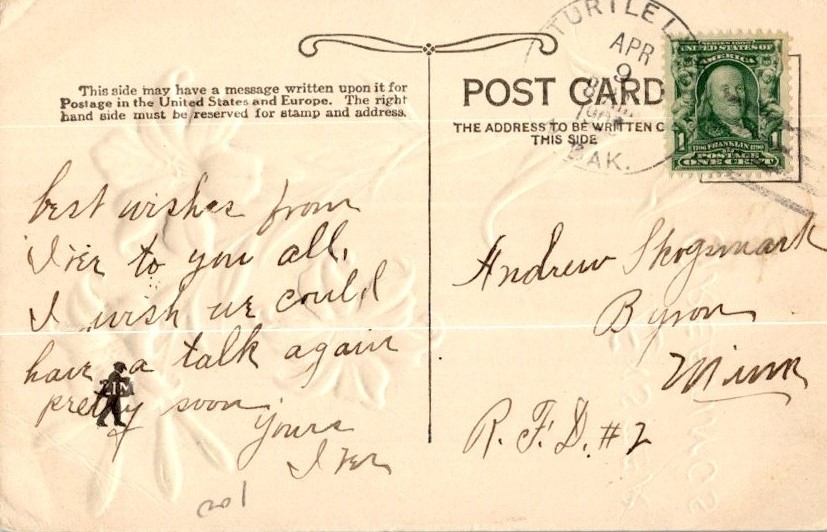 This side may have a message written upon it for
Postage in the United States and Europe. The right
hand side must be reserved for stamp and address.
best wishes from
Iver to you all,
I wish we could
have a talk again
pretty soon
Yours
Iver
ZIM
TURTLE L
APR
9
DAK.
POST CARD
THE ADDRESS TO BE WRITTEN O
THIS SIDE
SERIES 1902
UNITED STATES OF
AMERICA
1 1706 FRANKLIN 1790 1
POSTAGE
ONE CENT
Andrew Skogsmark
Byron
Minn
R. F. D. #2